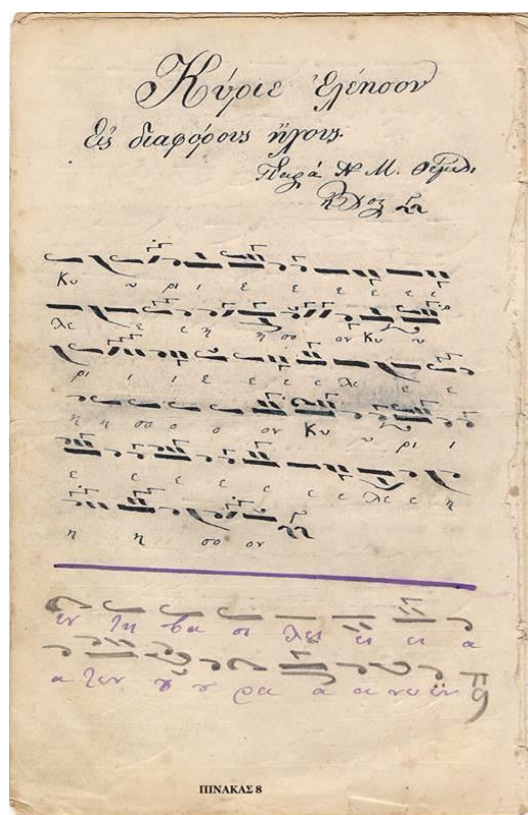 Κύριε Ἐλέησον
Εἰς διαφόρους ἤχους.
Παρὰ Ν. Μ.
Ἦχος
Κυ υ ρι ι ε ε ε ε ε ε
λε ε ε η η σο ον Κυ υ
ρι ι ι ε ε ε ε λε ε ε
η η σο ο ο ον Κυ υ ρι ι
ε ε ε ε ε ε λε ε η
η η σο ον
εν τη βα σι λει ει ει α
α των ȣ ȣ ρα α α νω ων
ΠΙΝΑΚΑΣ 8